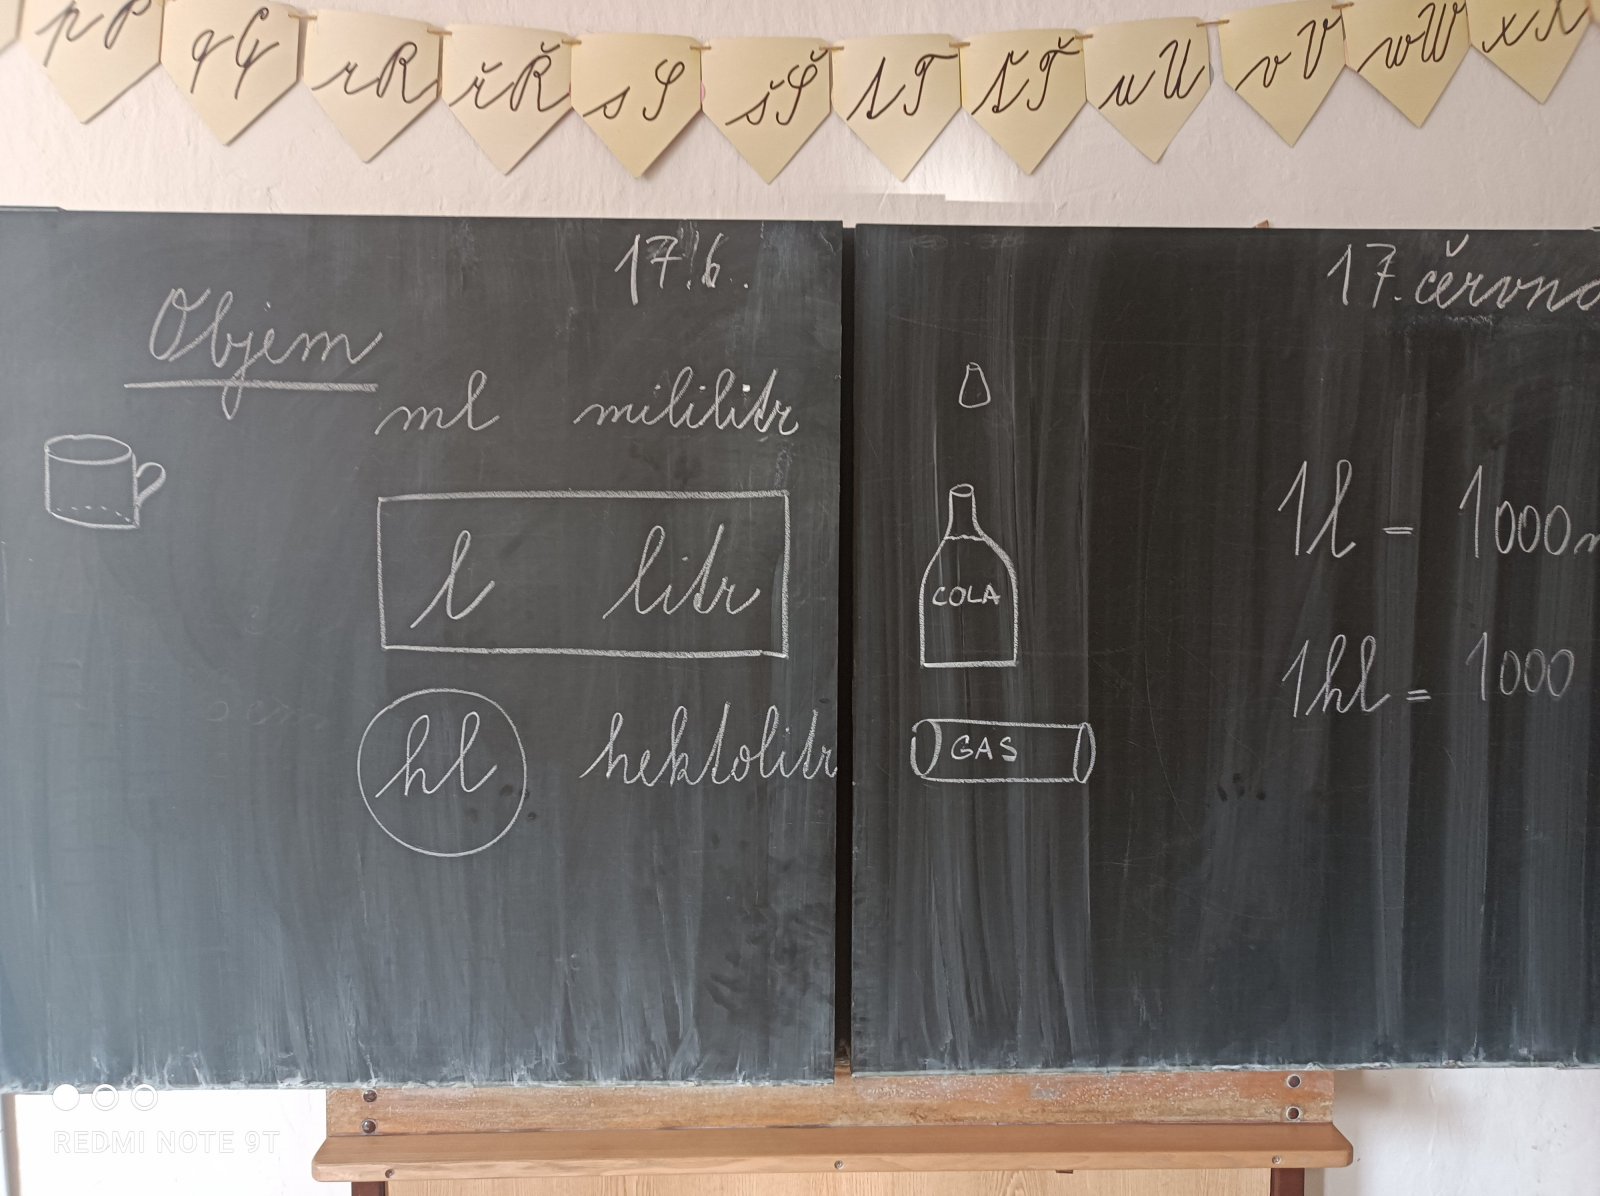 pP qQ rR řŘ sS šŠ tT ťŤ uU vV wW xX
17.6.
Objem
ml mililitr
l litr
hl hektolitr
17. června
COLA
GAS
1l = 1000m
1hl = 1000
REDMI NOTE 9T